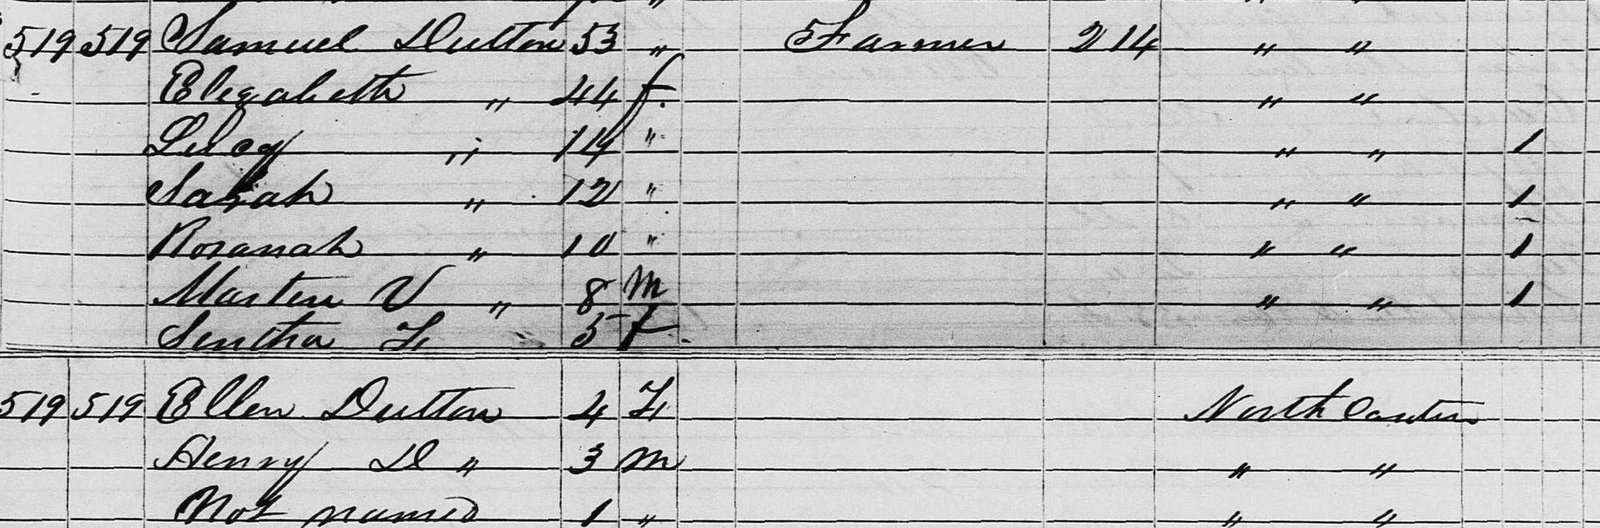 519 519 Samuel Dutton 53 " Farmer 214 " "
Elizabeth " 44 f. " "
Lucy " 14 " " " 1
Sarah " 12 " " " 1
Rosanah " 10 " " " 1
Martin V " 8 m " " 1
Sintha F " 5 f.
519 519 Ellen Dutton 4 F North
Henry D " 3 m " "
Not named 1 " " "